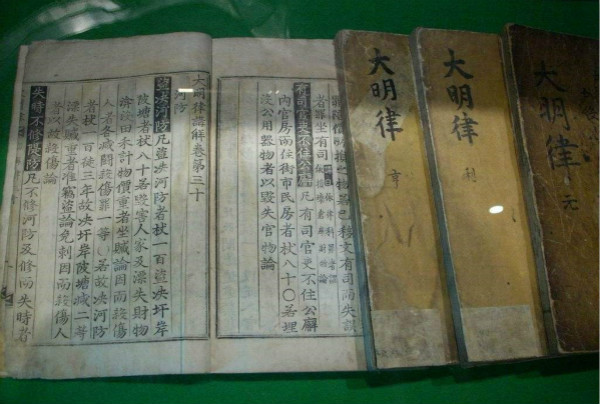 償所損之物若已移文有司而失誤
者罪坐有司
有司官吏不住公廨凡有司官吏不住公廨
內官房而住街市民房者杖八十○若埋
沒公用器物者以毀失官物論
大明律講解卷第三十
河防
盜決河防凡盜決河防者杖一百盜決圩岸
陂塘者杖八十若毀害人家及漂失財物
渰沒田禾計物價重者坐贓論因而殺傷
人者各減鬪殺傷罪一等○若故決河防
者杖一百徒三年故決圩岸陂塘減二等
漂失贓重者准竊盜論免刺因而殺傷人
者以故殺傷論
失時不修隄防凡不修河防及修而失時者
大明律
亨
大明律
利
大明律
元